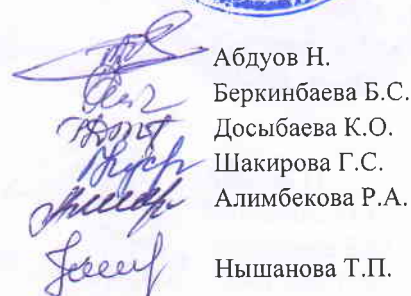 Абдуов Н.
Беркинбаева Б.С.
Досыбаева К.О.
Шакирова Г.С.
Алимбекова Р.А.
Нышанова Т.П.